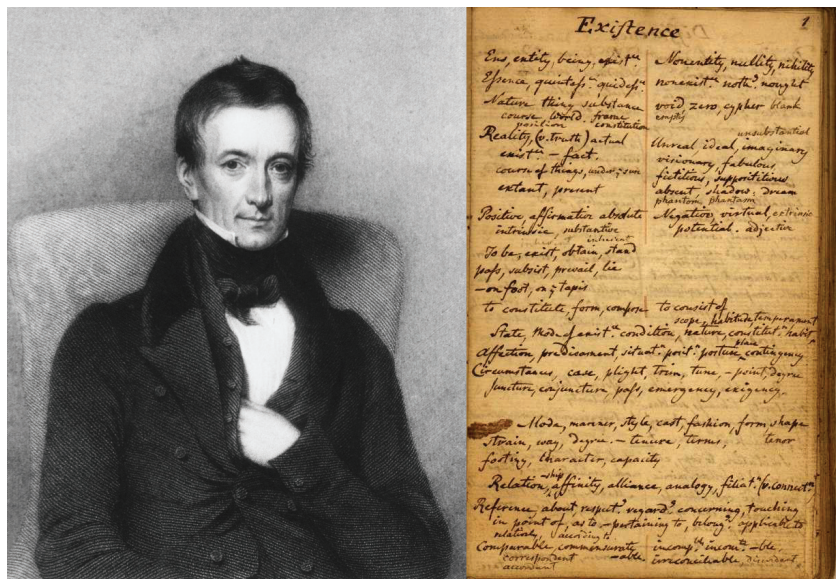 Existence
1
Ens, entity, being, existce
Essence, quintessce quiddity
Nature thing substance
course, World. frame
position constitution
Reality, (v. truth) actual
existce — fact.
course of things, under ye sun
extant, present
Positive, affirmative absolute
intrinsic, substantive
inherent
To be, exist, obtain, stand
pass, subsist, prevail, lie
— on foot, on ye tapis
to constitute, form, compose
Nonentity, nullity, nihility
nonexistce nothg nought
void, zero, cypher blank
empty
unsubstantial
Unreal, ideal, imaginary
visionary, fabulous,
fictitious, supposititious
absent, shadow, dream
phantom phantasm
Negative, virtual, extrinsic
potential. adjective
to consist of
scope, habitude, temperament
State, Mode of existce condition, nature, constitutn habit
Affection, predicament, situatn positn posture, contingency
place
Circumstances, case, plight, trim, tune, — point, degree
juncture, conjuncture, pass, emergency, exigency.
Mode, manner, style, cast, fashion, form, shape
Strain, way, degree. — tenure, terms, tenor
footing, character, capacity
Relation, -ship affinity, alliance, analogy, filiatn (v. connectn)
Reference, about, respectg regardg concerning, touching
in point of, as to — pertaining to, belongg applicable to
relatively, according to
Comparable, commensurate
-able,
correspondent
accordant
incompble incomte -ble,
irreconcileable, discordant